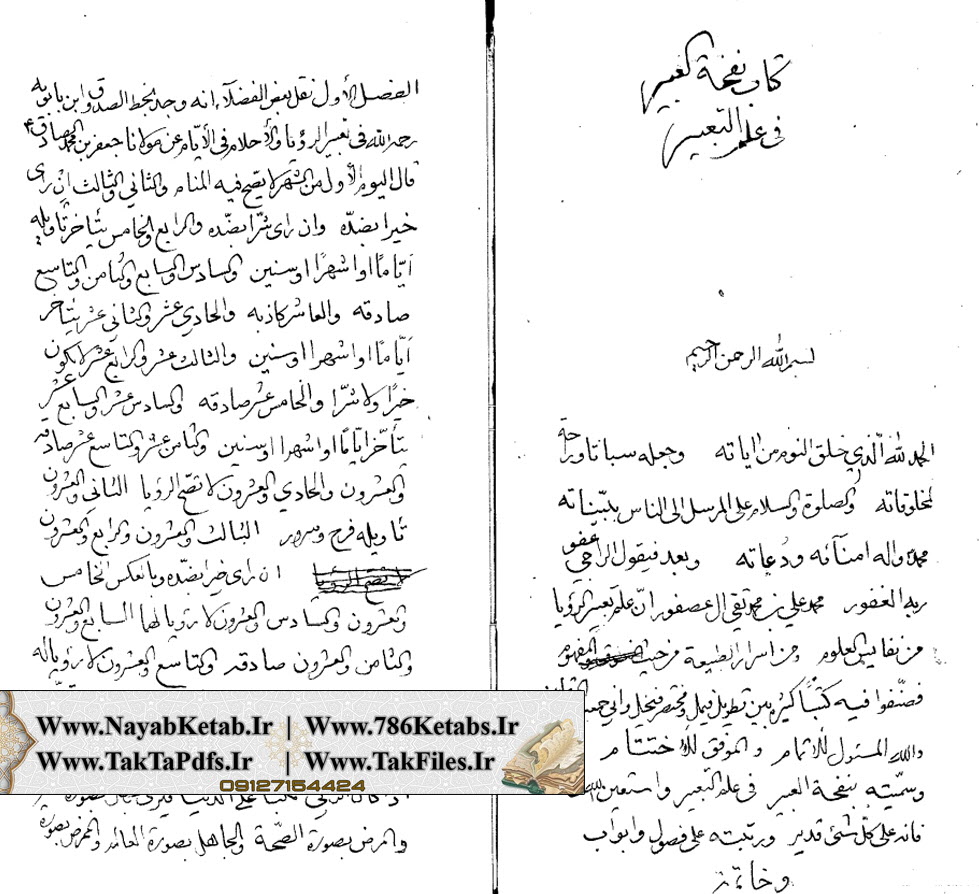 كتاب نفحة العبير
في علم التعبير
بسم الله الرحمن الرحيم
الحمد لله الذي خلق النوم من اياته وجعله سباتا وراحة
لمخلوقاته والصلوة والسلام على المرسل الى الناس ببيّناته
محمد واله امنآئه ودُعاته وبعد فيقول الراجي عفو
ربه الغفور محمد علي بن محمد تقي ال عصفور انّ علم تعبير الرؤيا
من نفايس العلوم ومن اسرار الطبيعة من حيث المفهوم
فصنّفوا فيه كتبًا كثيرة بين تطويل يمل ومختصر يخل واني
والله المسئول للاتمام والموفق للاختتام
وسمّيته بنفحة العبير في علم التعبير واستعين الله
فانه على كلّ شئ قدير ورتبته على فصول وابواب
وخاتمة
الفصل الأول نقل بعض الفضلآء انه وجد بخط الصدوق ابن بابويه
رحمه الله في تعبير الرؤيا والأحلام في الأيّام عن مولانا جعفر بن محمد الصادق ع
قال اليوم الأول من الشهر لا يصح فيه المنام والثاني والثالث ان راى
خيرا بضدّه وان راى شرّا بضّده والرابع والخامس يتأخر تاويله
ايّامًا او اشهرًا او سنين والسادس والسابع والثامن والتاسع
صادقه والعاشر كاذبه والحادي عشر والثاني عشر يتاخر
ايّامًا او اشهرا او سنين والثالث عشر والرابع عشر لا يكون
خيرًا ولا شرّا والخامس عشر صادقه والسادس عشر والسابع عشر
يتأخر ايّامًا او اشهرا او سنين والثامن عشر والتاسع عشر صادقه
والعشرون والحادي والعشرون لا تصح الرؤيا الثاني والعشرون
تاويله فرح وسرور الثالث والعشرون والرابع والعشرون
ان راى خيرا بضدّه وبالعكس الخامس
والعشرون والسادس والعشرون لا رؤيا لهما السابع والعشرون
والثامن والعشرون صادقه والتاسع والعشرون لا رؤيا له
والمرض بصورة الصّحة والجاهل بصورة العالم والمرض بصورة
Www.NayabKetab.Ir | Www.786Ketabs.Ir
Www.TakTaPdfs.Ir | Www.TakFiles.Ir
09127154424